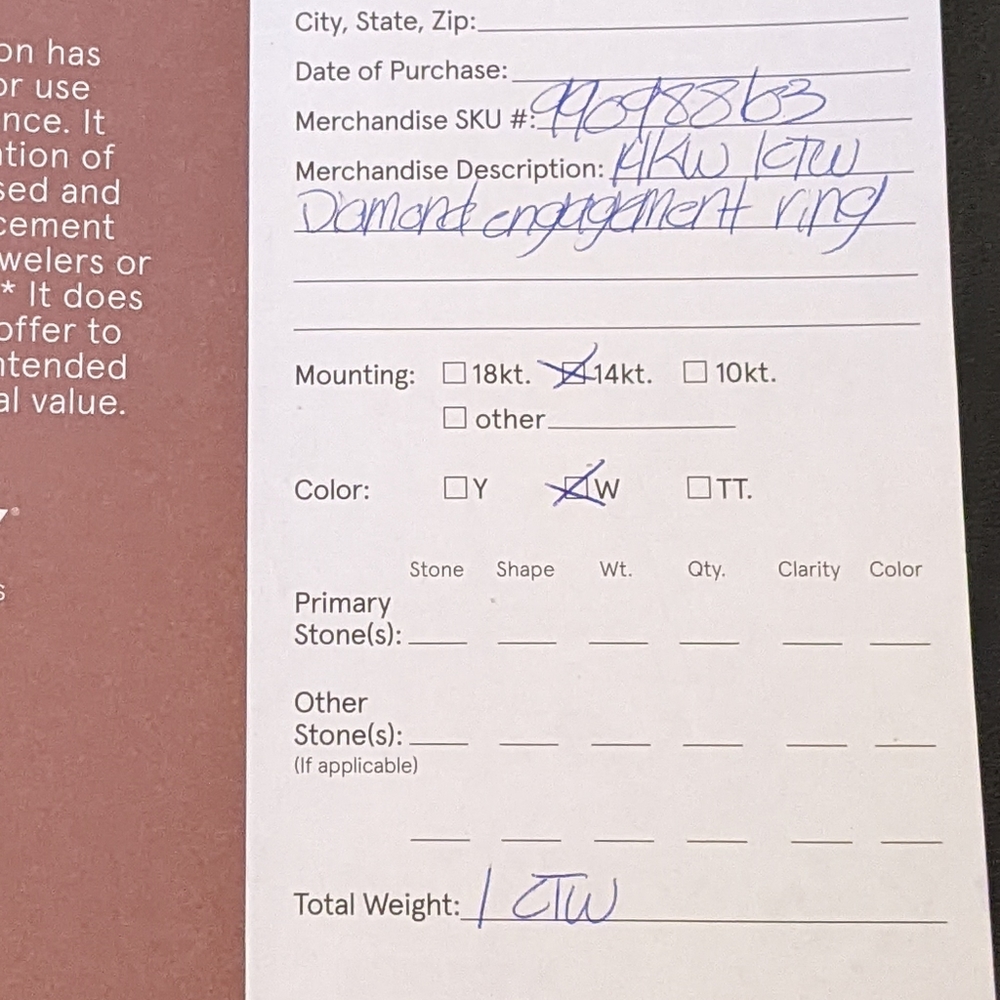 on has
or use
nce. It
ation of
sed and
cement
welers or
* It does
offer to
ntended
al value.
City, State, Zip:
Date of Purchase:
Merchandise SKU #: 99098863
Merchandise Description: 14KW 1CTW
Diamond engagement ring
Mounting: 18kt. 14kt. 10kt.
other
Color: Y W TT.
Stone Shape Wt. Qty. Clarity Color
Primary
Stone(s):
Other
Stone(s):
(If applicable)
Total Weight: 1 CTW